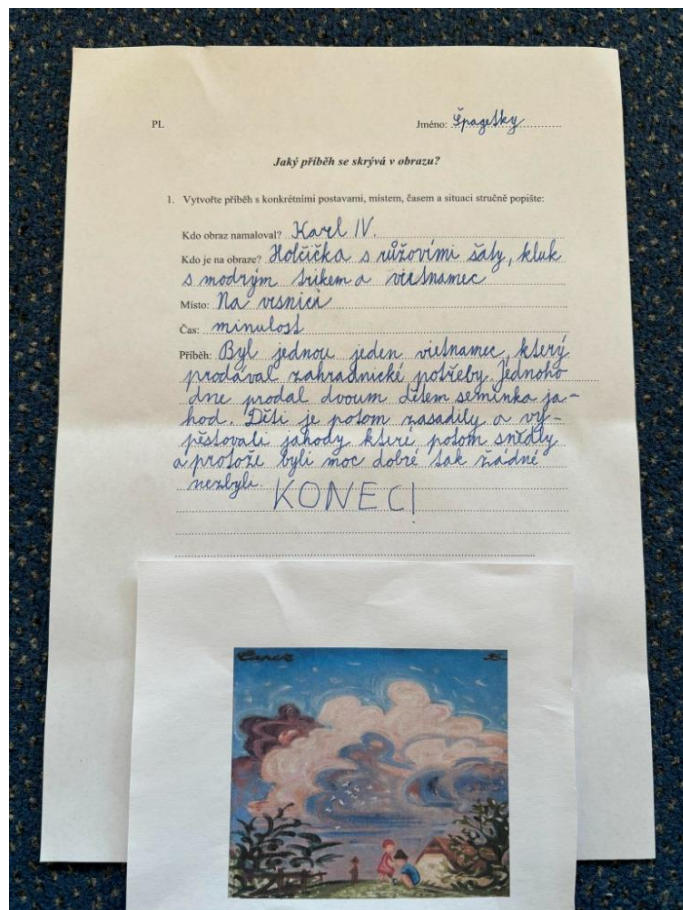 PL
Jméno: Špagetky
Jaký příběh se skrývá v obrazu?
1. Vytvořte příběh s konkrétními postavami, místem, časem a situaci stručně popište:
Kdo obraz namaloval? Karel IV.
Kdo je na obraze? Holčička s růžovími šaty, kluk
s modrým trikem a vietnamec
Místo: Na vesnici
Čas: minulost
Příběh: Byl jednou jeden vietnamec, který
prodával zahradnické potřeby. Jednoho
dne prodal dvoum dětem semínka ja-
hod. Děti je potom zasadily a vy-
pěstovali jahody které potom snědly
a protože byli moc dobré tak žádné
nezbyla.
KONEC!
Čapek 35